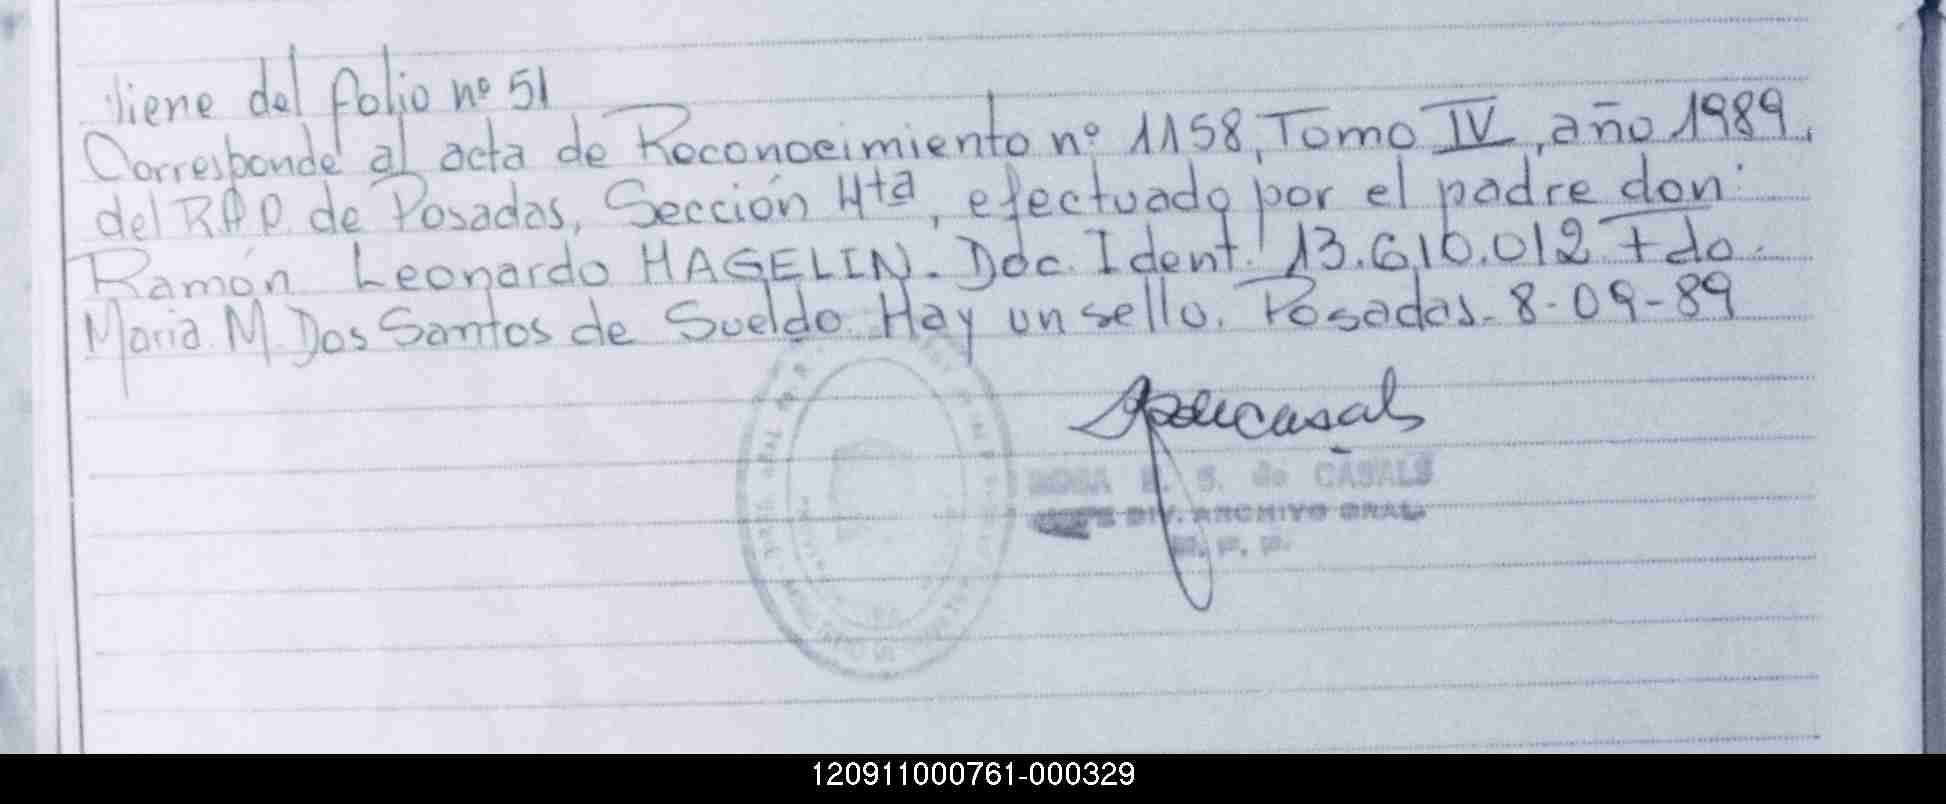 Viene del folio nº 51
Corresponde al acta de Reconocimiento nº 1158, Tomo IV, año 1989,
del R.P.P. de Posadas, Sección 4ta, efectuado por el padre don:
Ramón Leonardo HAGELIN. Doc. Ident. 13.610.012 Fdo.
Maria M. Dos Santos de Sueldo. Hay un sello. Posadas. 8-09-89
ROSA E. S. de CASALS
JEFE DIV. ARCHIVO GRAL.
R. P. P.
120911000761-000329